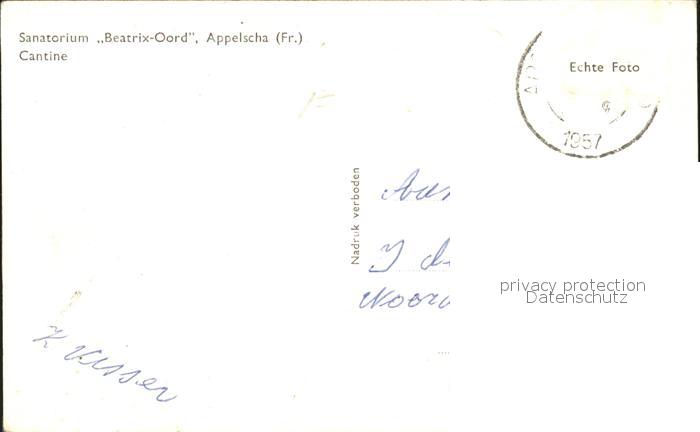 Sanatorium „Beatrix-Oord", Appelscha (Fr.)
Cantine
Echte Foto
1957
Nadruk verboden
Aan
privacy protection
Datenschutz
K Visser